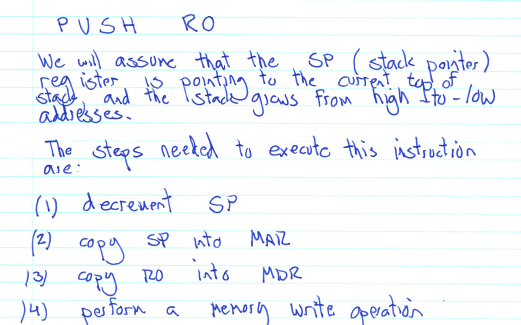 PUSH R0
We will assume that the SP (stack pointer)
register is pointing to the current top of
stack, and the stack grows from high-to-low
addresses.
The steps needed to execute this instruction
are:
(1) decrement SP
(2) copy SP into MAR
(3) copy R0 into MDR
(4) perform a memory write operation